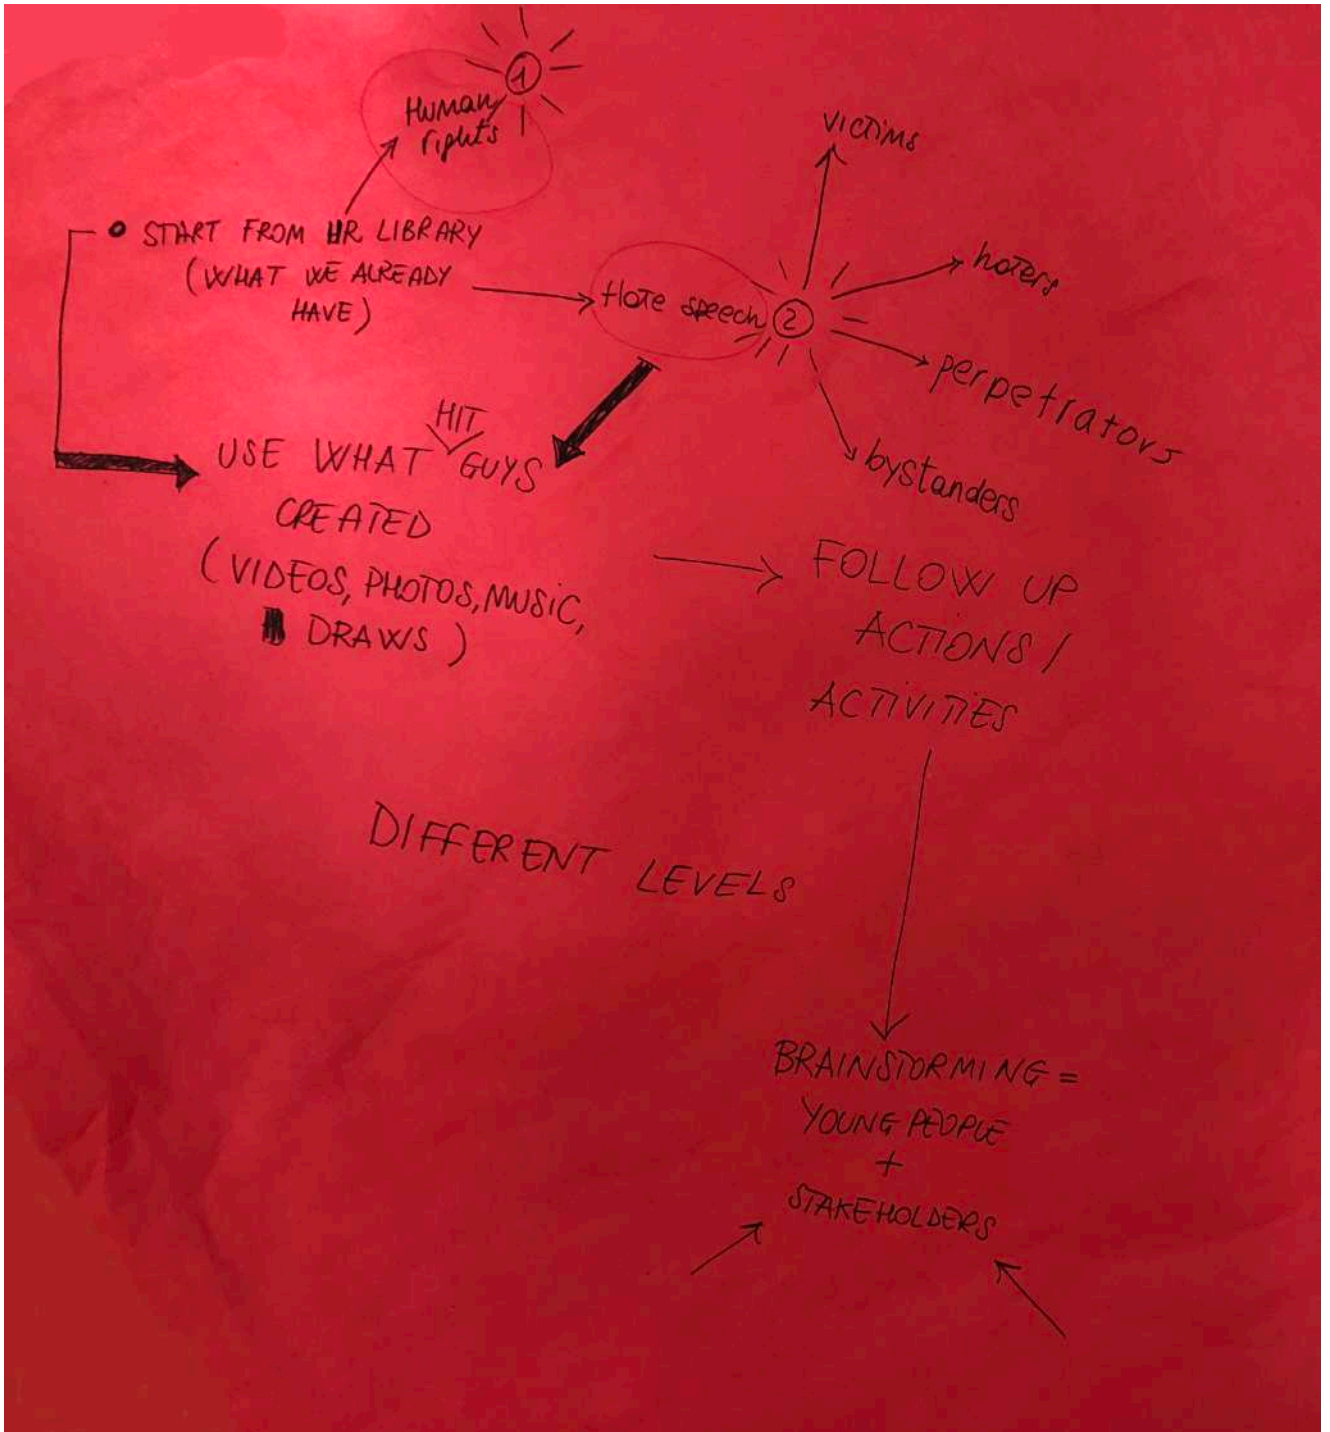 1
Human
rights
VICTIMS
• START FROM HR LIBRARY
(WHAT WE ALREADY
HAVE)
Hate speech 2
haters
perpetrators
bystanders
HIT
USE WHAT GUYS
CREATED
(VIDEOS, PHOTOS, MUSIC,
DRAWS)
FOLLOW UP
ACTIONS /
ACTIVITIES
DIFFERENT LEVELS
BRAINSTORMING =
YOUNG PEOPLE
+
STAKEHOLDERS